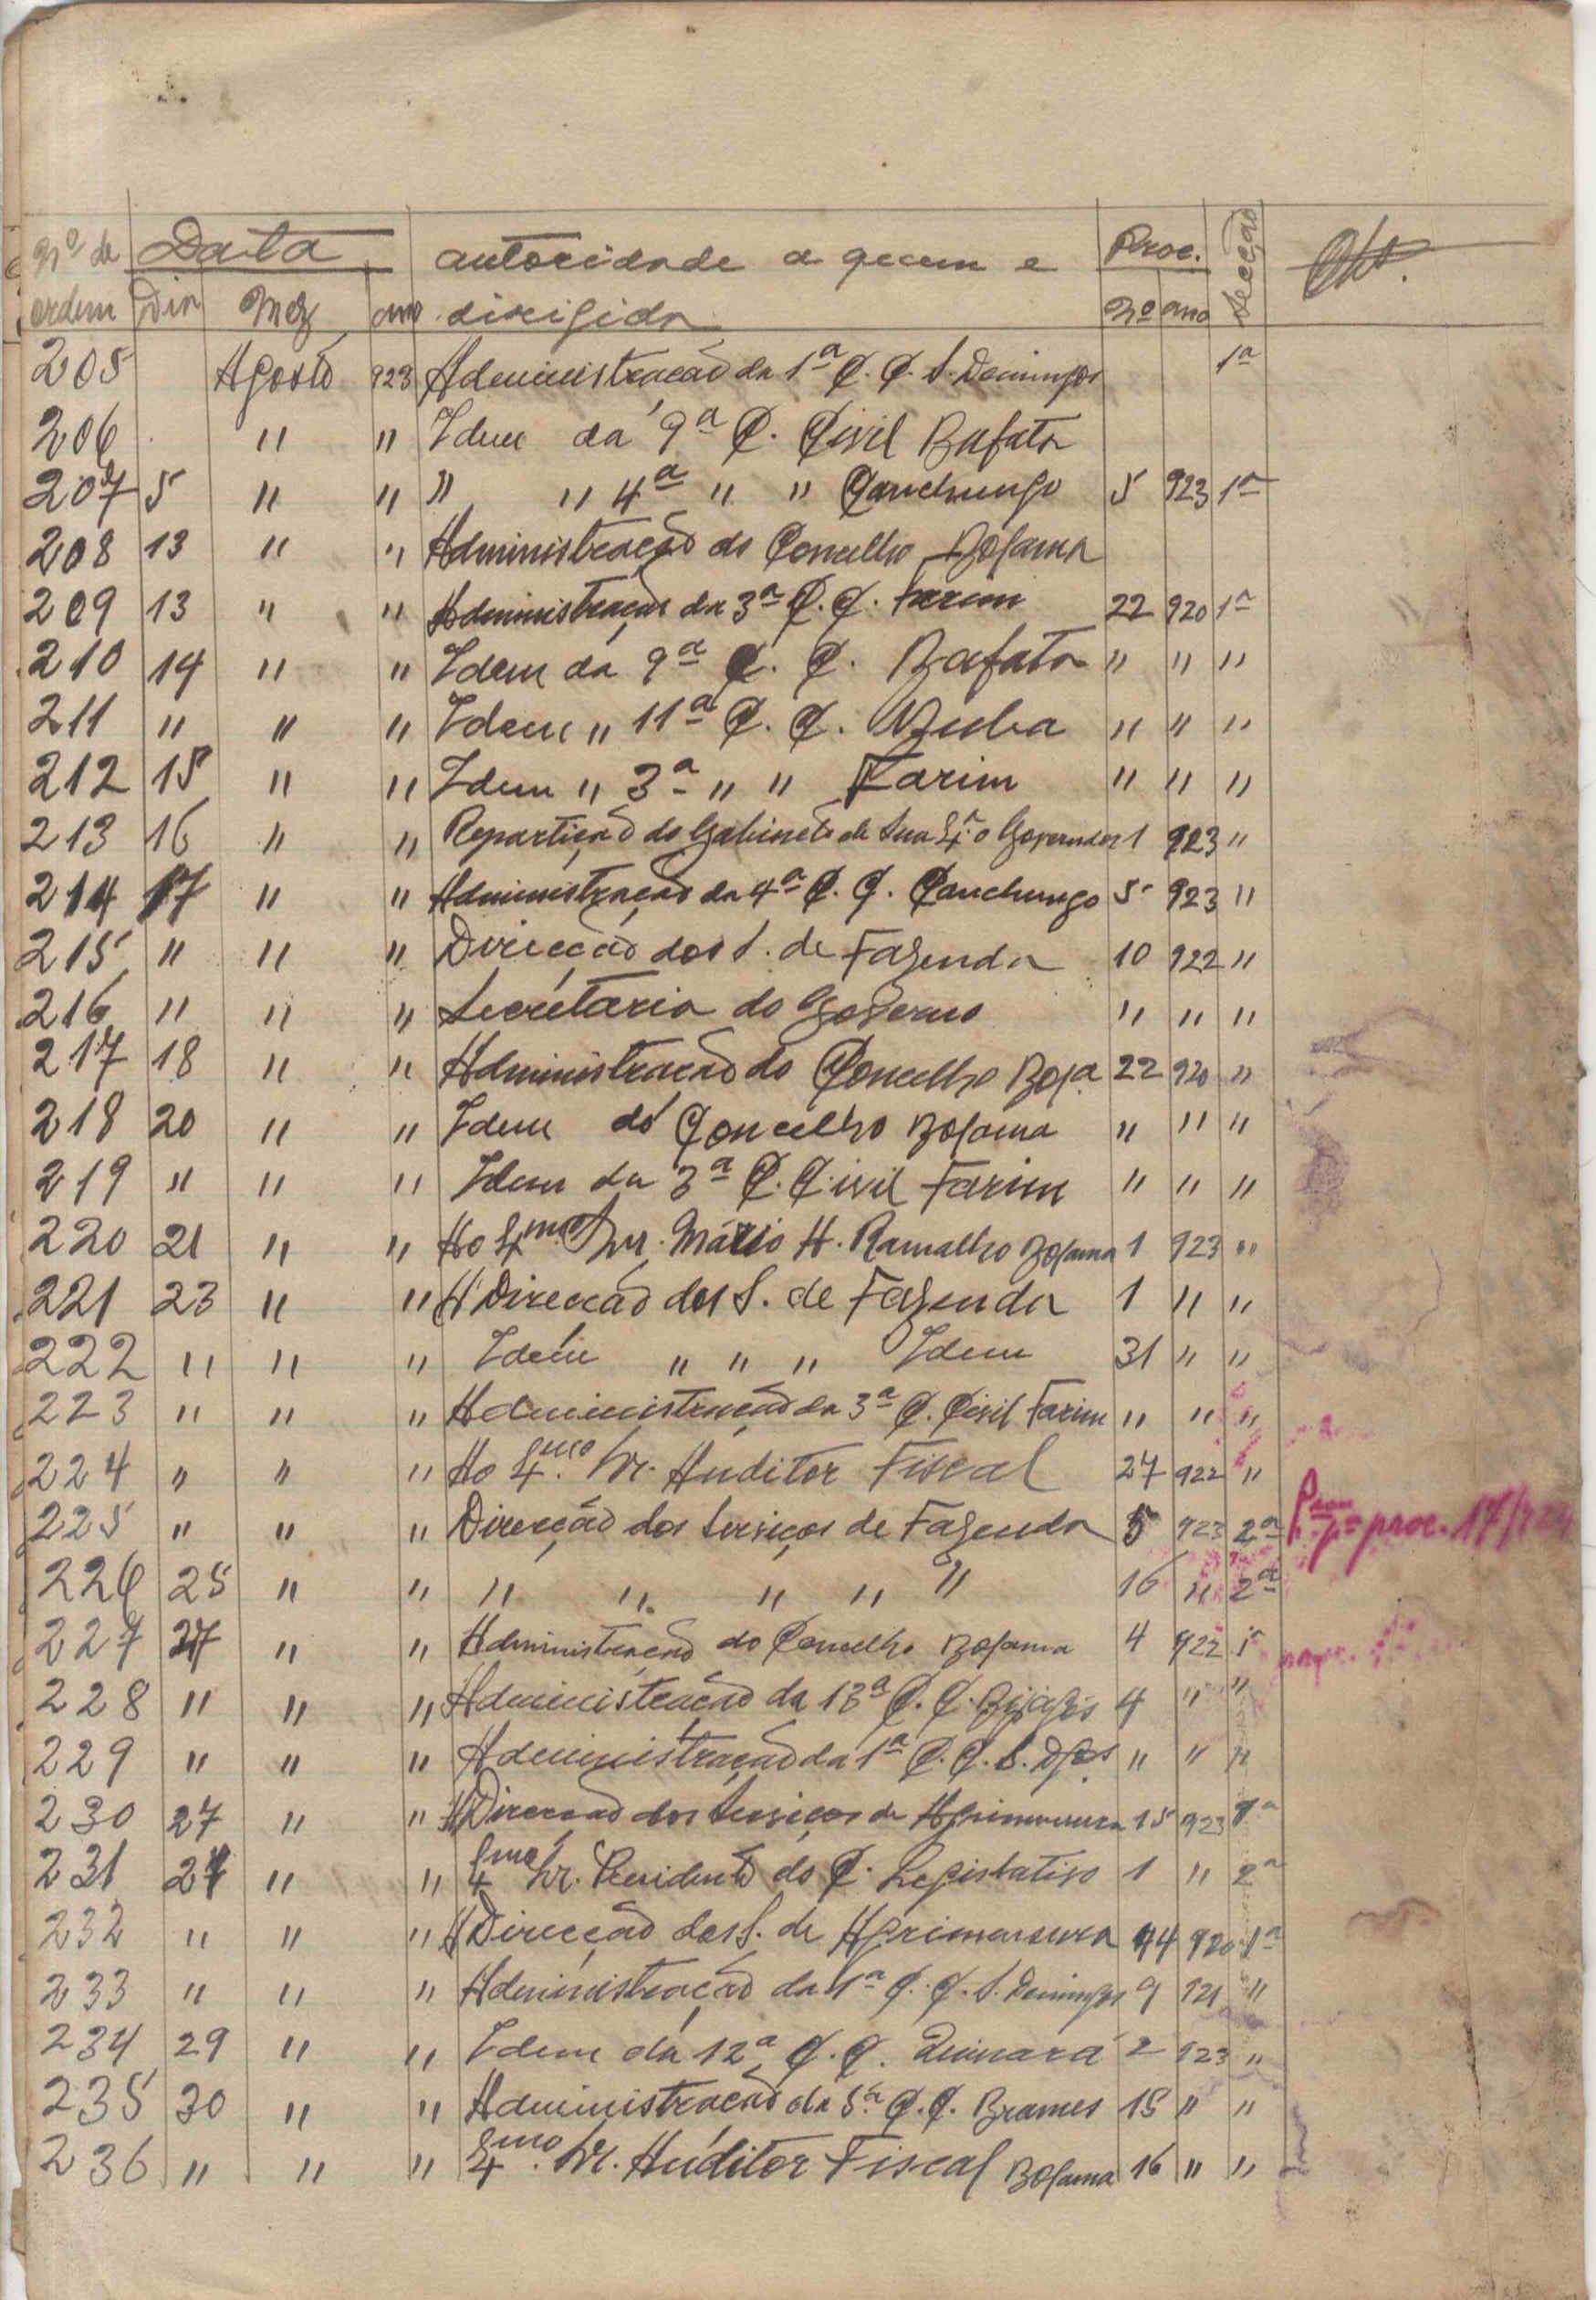 Nº de Data autoridade a quem e Proc. Secção Obs.
ordem Dia Mez ano dirigida Nº ano
205 Agosto 923 Administração da 1ª C. C. S. Domingos 1ª
206 " " Idem da 9ª C. Civil Bafata
207 5 " " " " 4ª " " Canchungo 5 923 1ª
208 13 " " Administração do Concelho Bolama
209 13 " " Administração da 3ª C. C. Farim 22 920 1ª
210 14 " " Idem da 9ª C. C. Bafata " " "
211 " " " Idem " 11ª C. C. Buba " " "
212 15 " " Idem " 3ª " " Farim " " "
213 16 " " Repartição do Gabinete de Sua Exª o Governador 1 923 "
214 17 " " Administração da 4ª C. C. Canchungo 5 923 "
215 " " " Direcção dos S. de Fazenda 10 922 "
216 " " " Secretaria do Governo " " "
217 18 " " Administração do Concelho Bola 22 920 "
218 20 " " Idem do Concelho Bolama " " "
219 " " " Idem da 3ª C. Civil Farim " " "
220 21 " " Ao Exmo Snr. Mário A. Ramalho Bolama 1 923 "
221 23 " " A Direcção dos S. de Fazenda 1 " "
222 " " " Idem " " " Idem 31 " "
223 " " " Administração da 3ª C. Civil Farim " " "
224 " " " Ao Exmo. Sr. Auditor Fiscal 27 922 "
225 " " " Direcção dos Serviços de Fazenda 5 923 2ª proc. 17/
226 25 " " " " " " " 16 " 2ª
227 27 " " Administração do Concelho Bolama 4 922 1ª
228 " " " Administração da 13ª C. C. Bijagós 4 " "
229 " " " Administração da 1ª C. C. S. Dgos " " "
230 27 " " A Direcção dos Serviços de Agrimensura 15 923 1ª
231 27 " " Exmo Sr. Presidente do C. Legislativo 1 " 2ª
232 " " " A Direcção dos S. de Agrimensura 44 920 1ª
233 " " " Administração da 1ª C. C. S. Domingos 9 921 "
234 29 " " Idem da 12ª C. C. Quinara 2 923 "
235 30 " " Administração da 5ª C. C. Brames 15 " "
236 " " " Exmo. Sr. Auditor Fiscal Bolama 16 " "